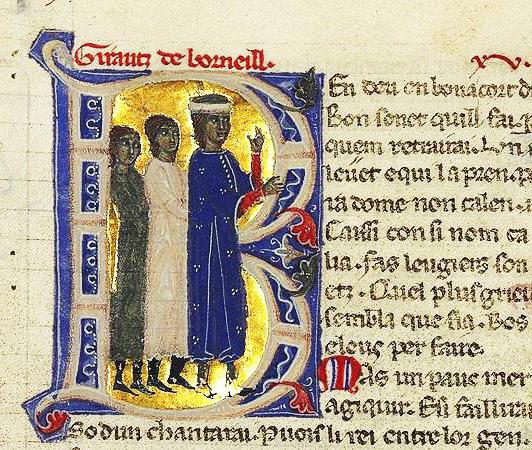 Girautz de borneill. xv.
En deu en bonacort d
Bon sonet quill fai
quem retrairai. Un
leuet e qui la pren
ra dome non calen. a
Caissi con si nom ca
lia. fas leugiers son
etz. Cuel plus grieu
sembla que fia. Bos
eleus per faire.
Mas un pauc mer
agiquir. Esi faillira
So dun chantarai. Puois li rei entre lor gen.